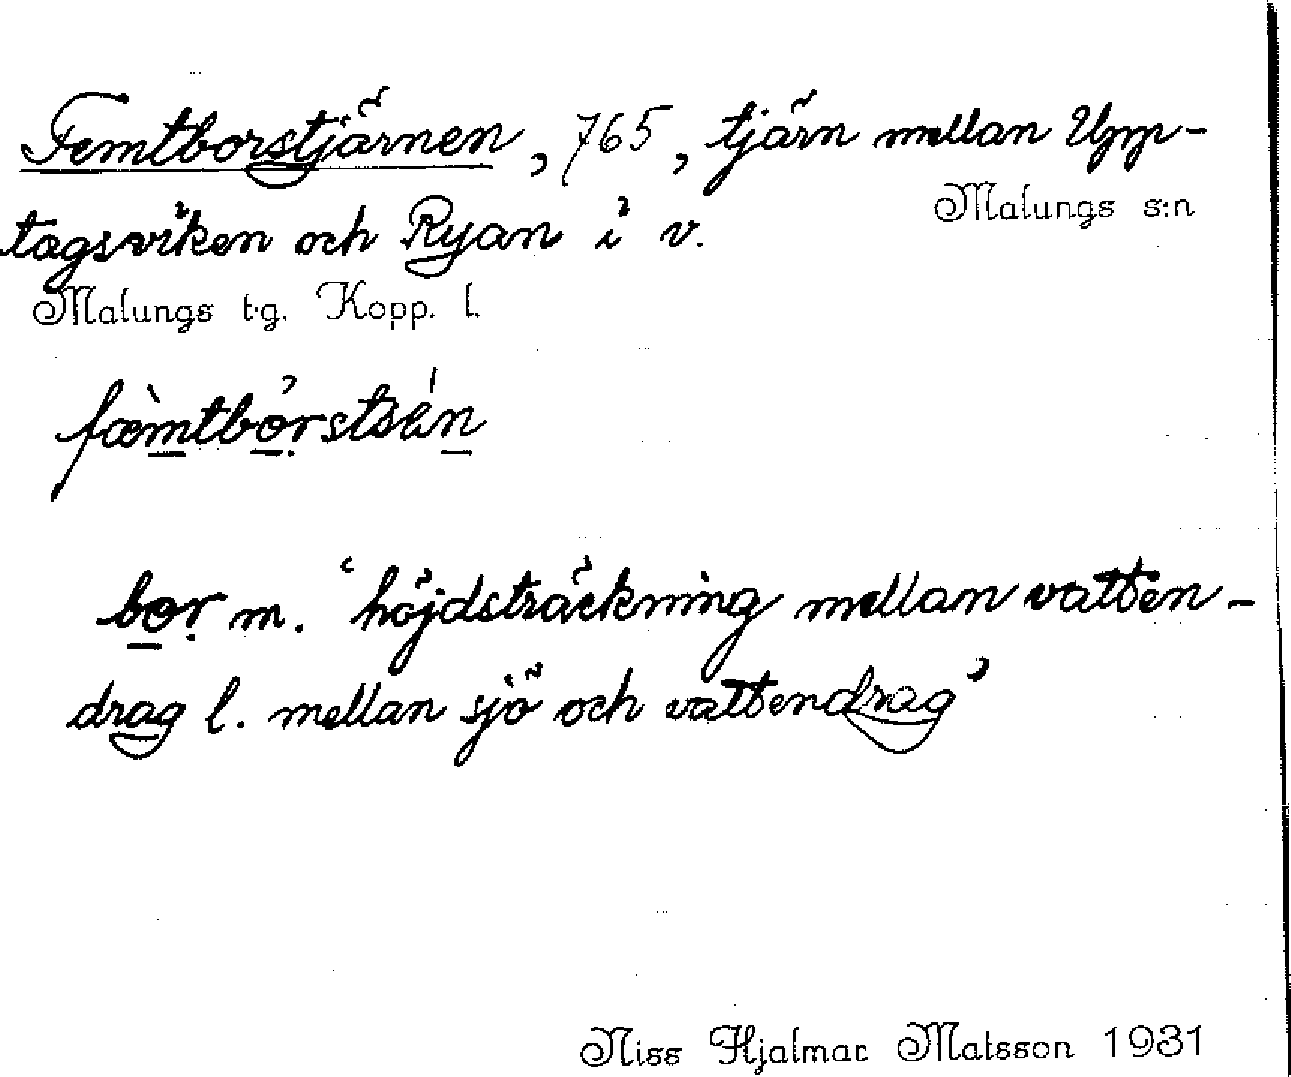 Femtborstjärnen, 765, tjärn mellan Upp-
Malungs s:n
tagsviken och Ryan i v.
Malungs t.g. Kopp. l.
fæ̀mtbo̠rstsén
bor m. ‘höjdsträckning mellan vatten-
drag l. mellan sjö och vattendrag’
Niss Hjalmar Matsson 1931